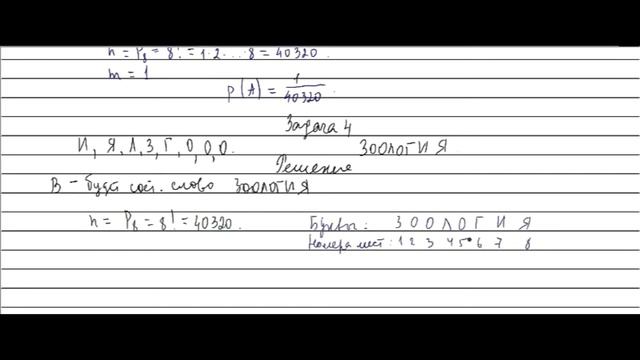 n = P₈ = 8! = 1·2·...·8 = 40320.
m = 1
P(A) = 1/40320.
Задача 4
И, Я, Л, З, Г, О, О, О. ЗООЛОГИЯ.
Решение
B – будет сост. слово ЗООЛОГИЯ
n = P₈ = 8! = 40320.
Буквы: З О О Л О Г И Я
Номера мест: 1 2 3 4 5 6 7 8